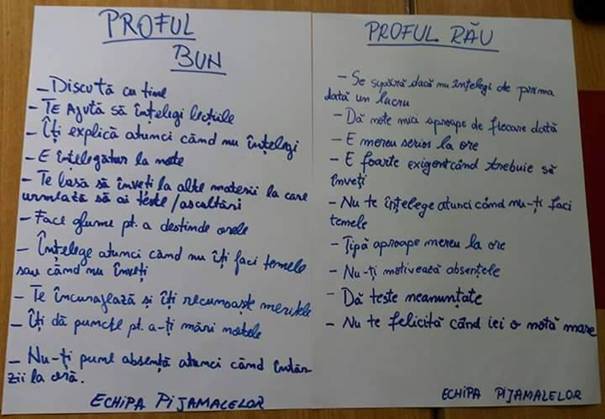 PROFUL
BUN
- Discută cu tine
- TE Ajută să înțelegi lecțiile
- Îți explică atunci când nu înțelegi
- E înțelegător la note
- Te lasă să înveți la alte materii la care
urmează să ai teste/ascultări
- Face glume pt. a destinde orele
- Înțelege atunci când nu îți faci temele
sau când nu înveți
- Te încurajează și îți recunoaște meritele
- Îți dă puncte pt. a-ți mări notele
- Nu-ți pune absență atunci când întâr
zii la oră.
ECHIPA PIJAMALELOR
PROFUL RĂU
- Se supără dacă nu înțelegi de prima
dată un lucru
- Dă note mici aproape de fiecare dată
- E mereu serios la ore
- E foarte exigent când trebuie să
înveți
- Nu te înțelege atunci când nu-ți faci
temele
- Țipă aproape mereu la ore
- Nu-ți motivează absențele
- Dă teste neanunțate
- Nu te felicită când iei o notă mare
ECHIPA PIJAMALELOR